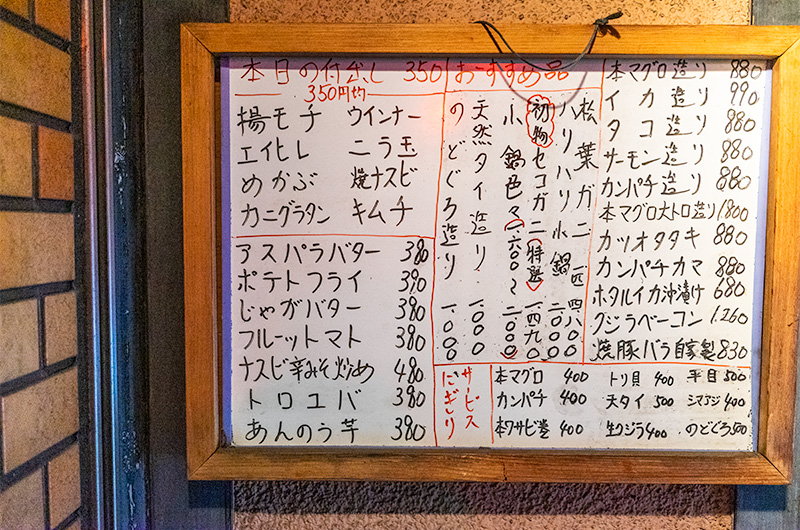 本日の付出し 350
350円均一
揚モチ ウインナー
エイヒレ ニラ玉
めかぶ 焼ナスビ
カニグラタン キムチ
アスパラバター 380
ポテトフライ 390
じゃがバター 380
フルーツトマト 380
ナスビ辛みそ炒め 480
トロユバ 380
あんのう芋 380
おすすめ品
松葉ガニ 一匹 四八〇〇
ハリハリ小鍋 二〇〇〇
初物 セコガニ(特選) 一四九〇
小鍋色々(一、六〇〇〜二〇〇〇)
天然タイ造り 一〇〇〇
のどぐろ造り 一、〇〇〇
本マグロ造り 880
イカ造り 990
タコ造り 880
サーモン造り 880
カンパチ造り 880
本マグロ大トロ造り 1.800
カツオタタキ 880
カンパチカマ 880
ホタルイカ沖漬け 680
クジラベーコン 1.260
焼豚バラ自家製 830
サービス
にぎり
本マグロ 400 トリ貝 400 平目 500
カンパチ 400 天タイ 500 シマアジ 400
本ワサビ巻 400 生クジラ 400 のどぐろ 500